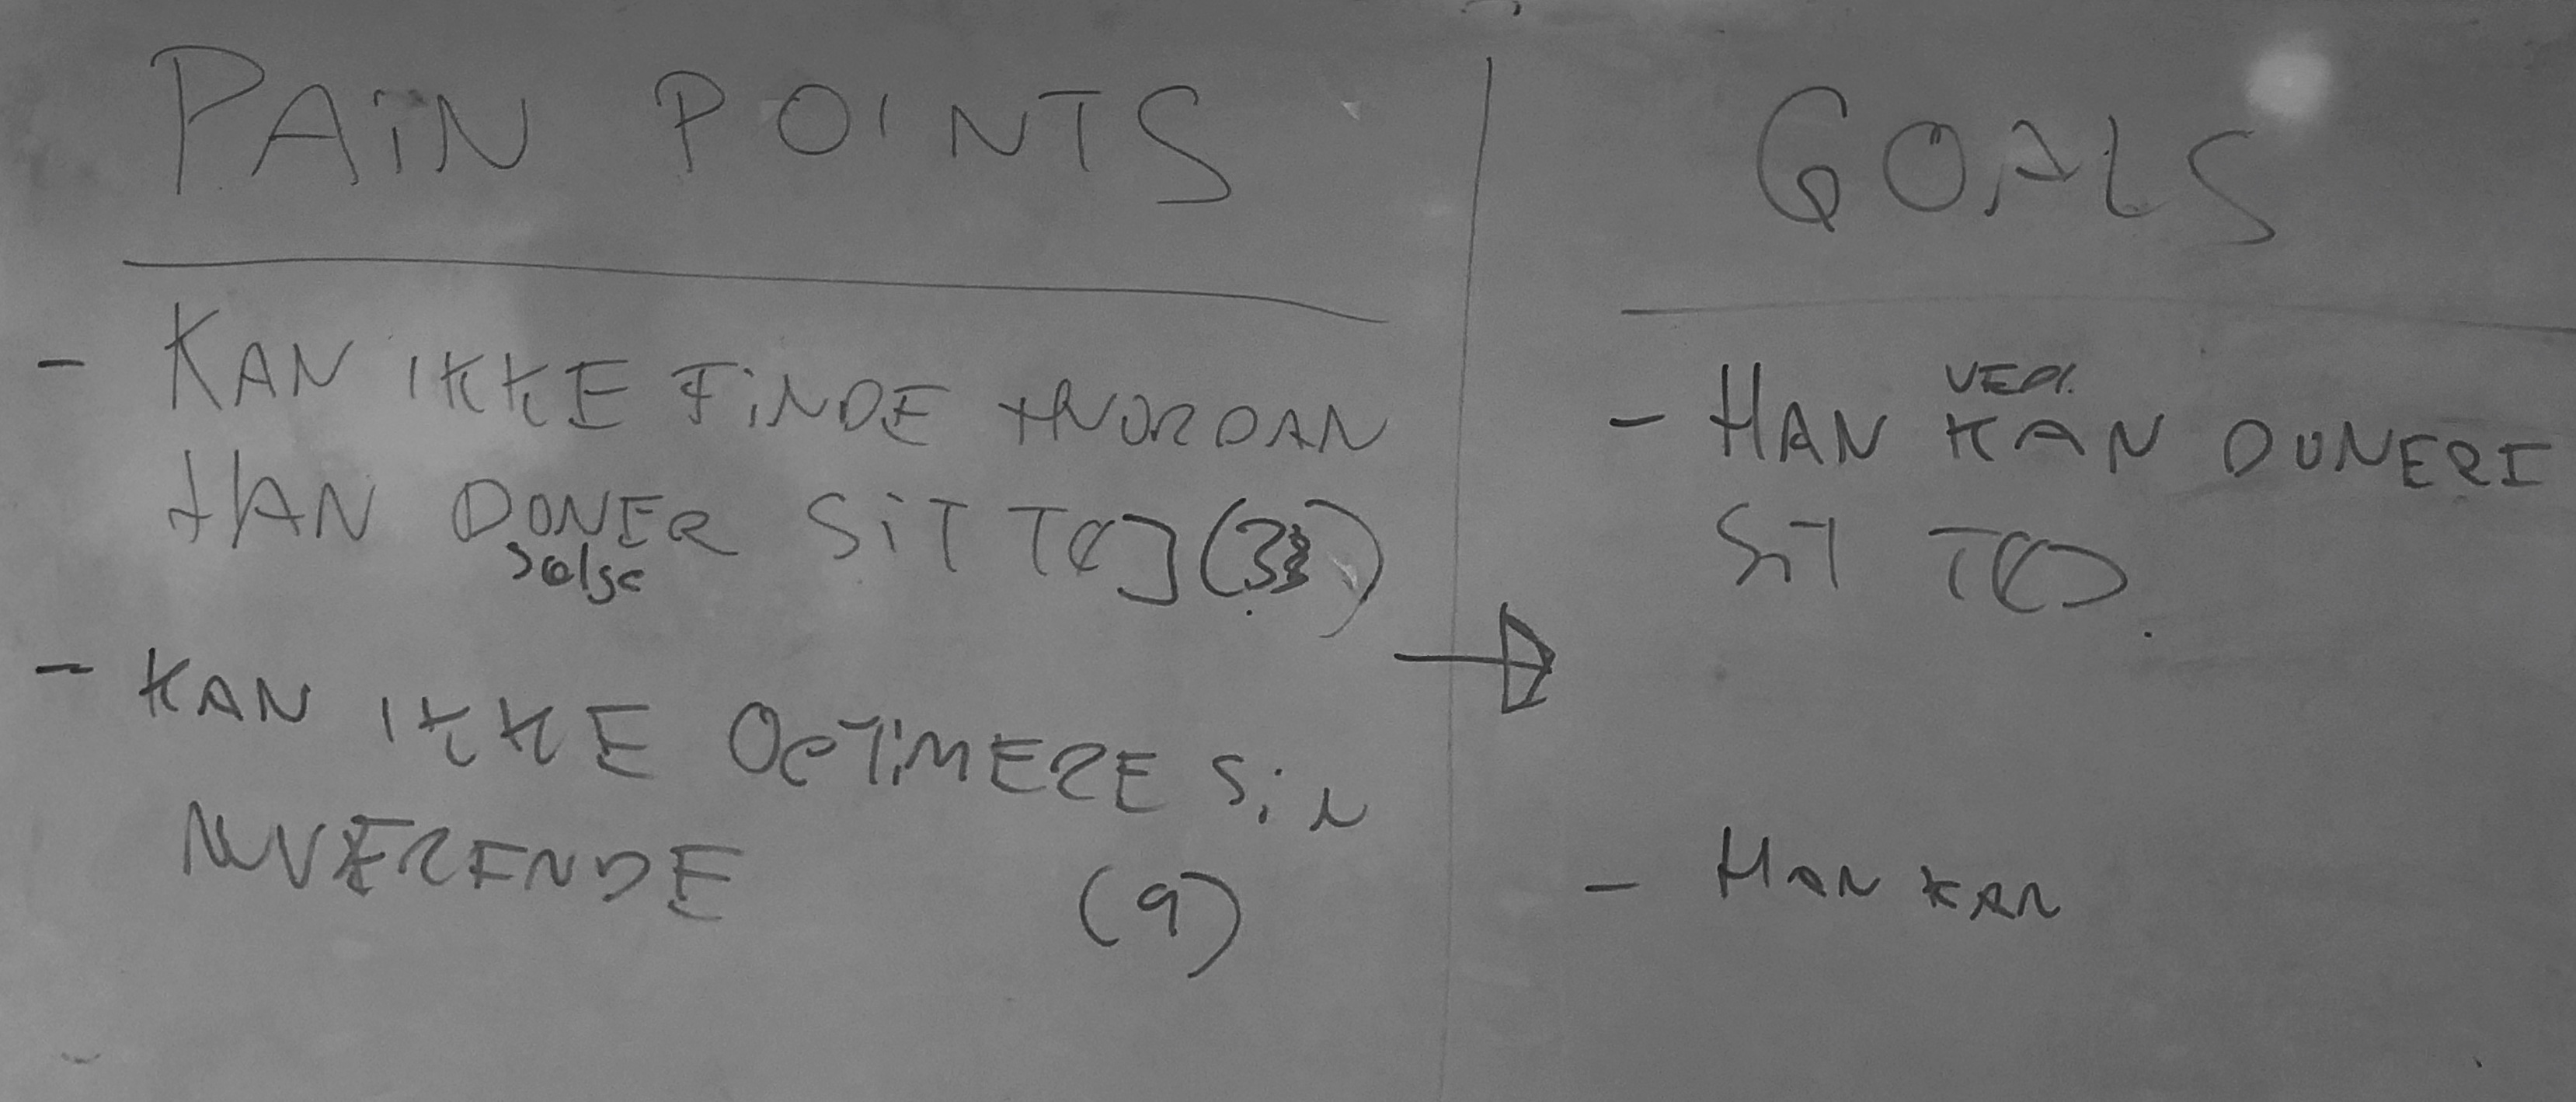 PAIN POINTS
- KAN IKKE FINDE HVORDAN
HAN DONER SIT TØJ (3)
sælge
- KAN IKKE OPTIMERE SIN
NUVÆRENDE (9)
GOALS
- HAN KAN DONERE
SIT TØJ.
- HAN KAN